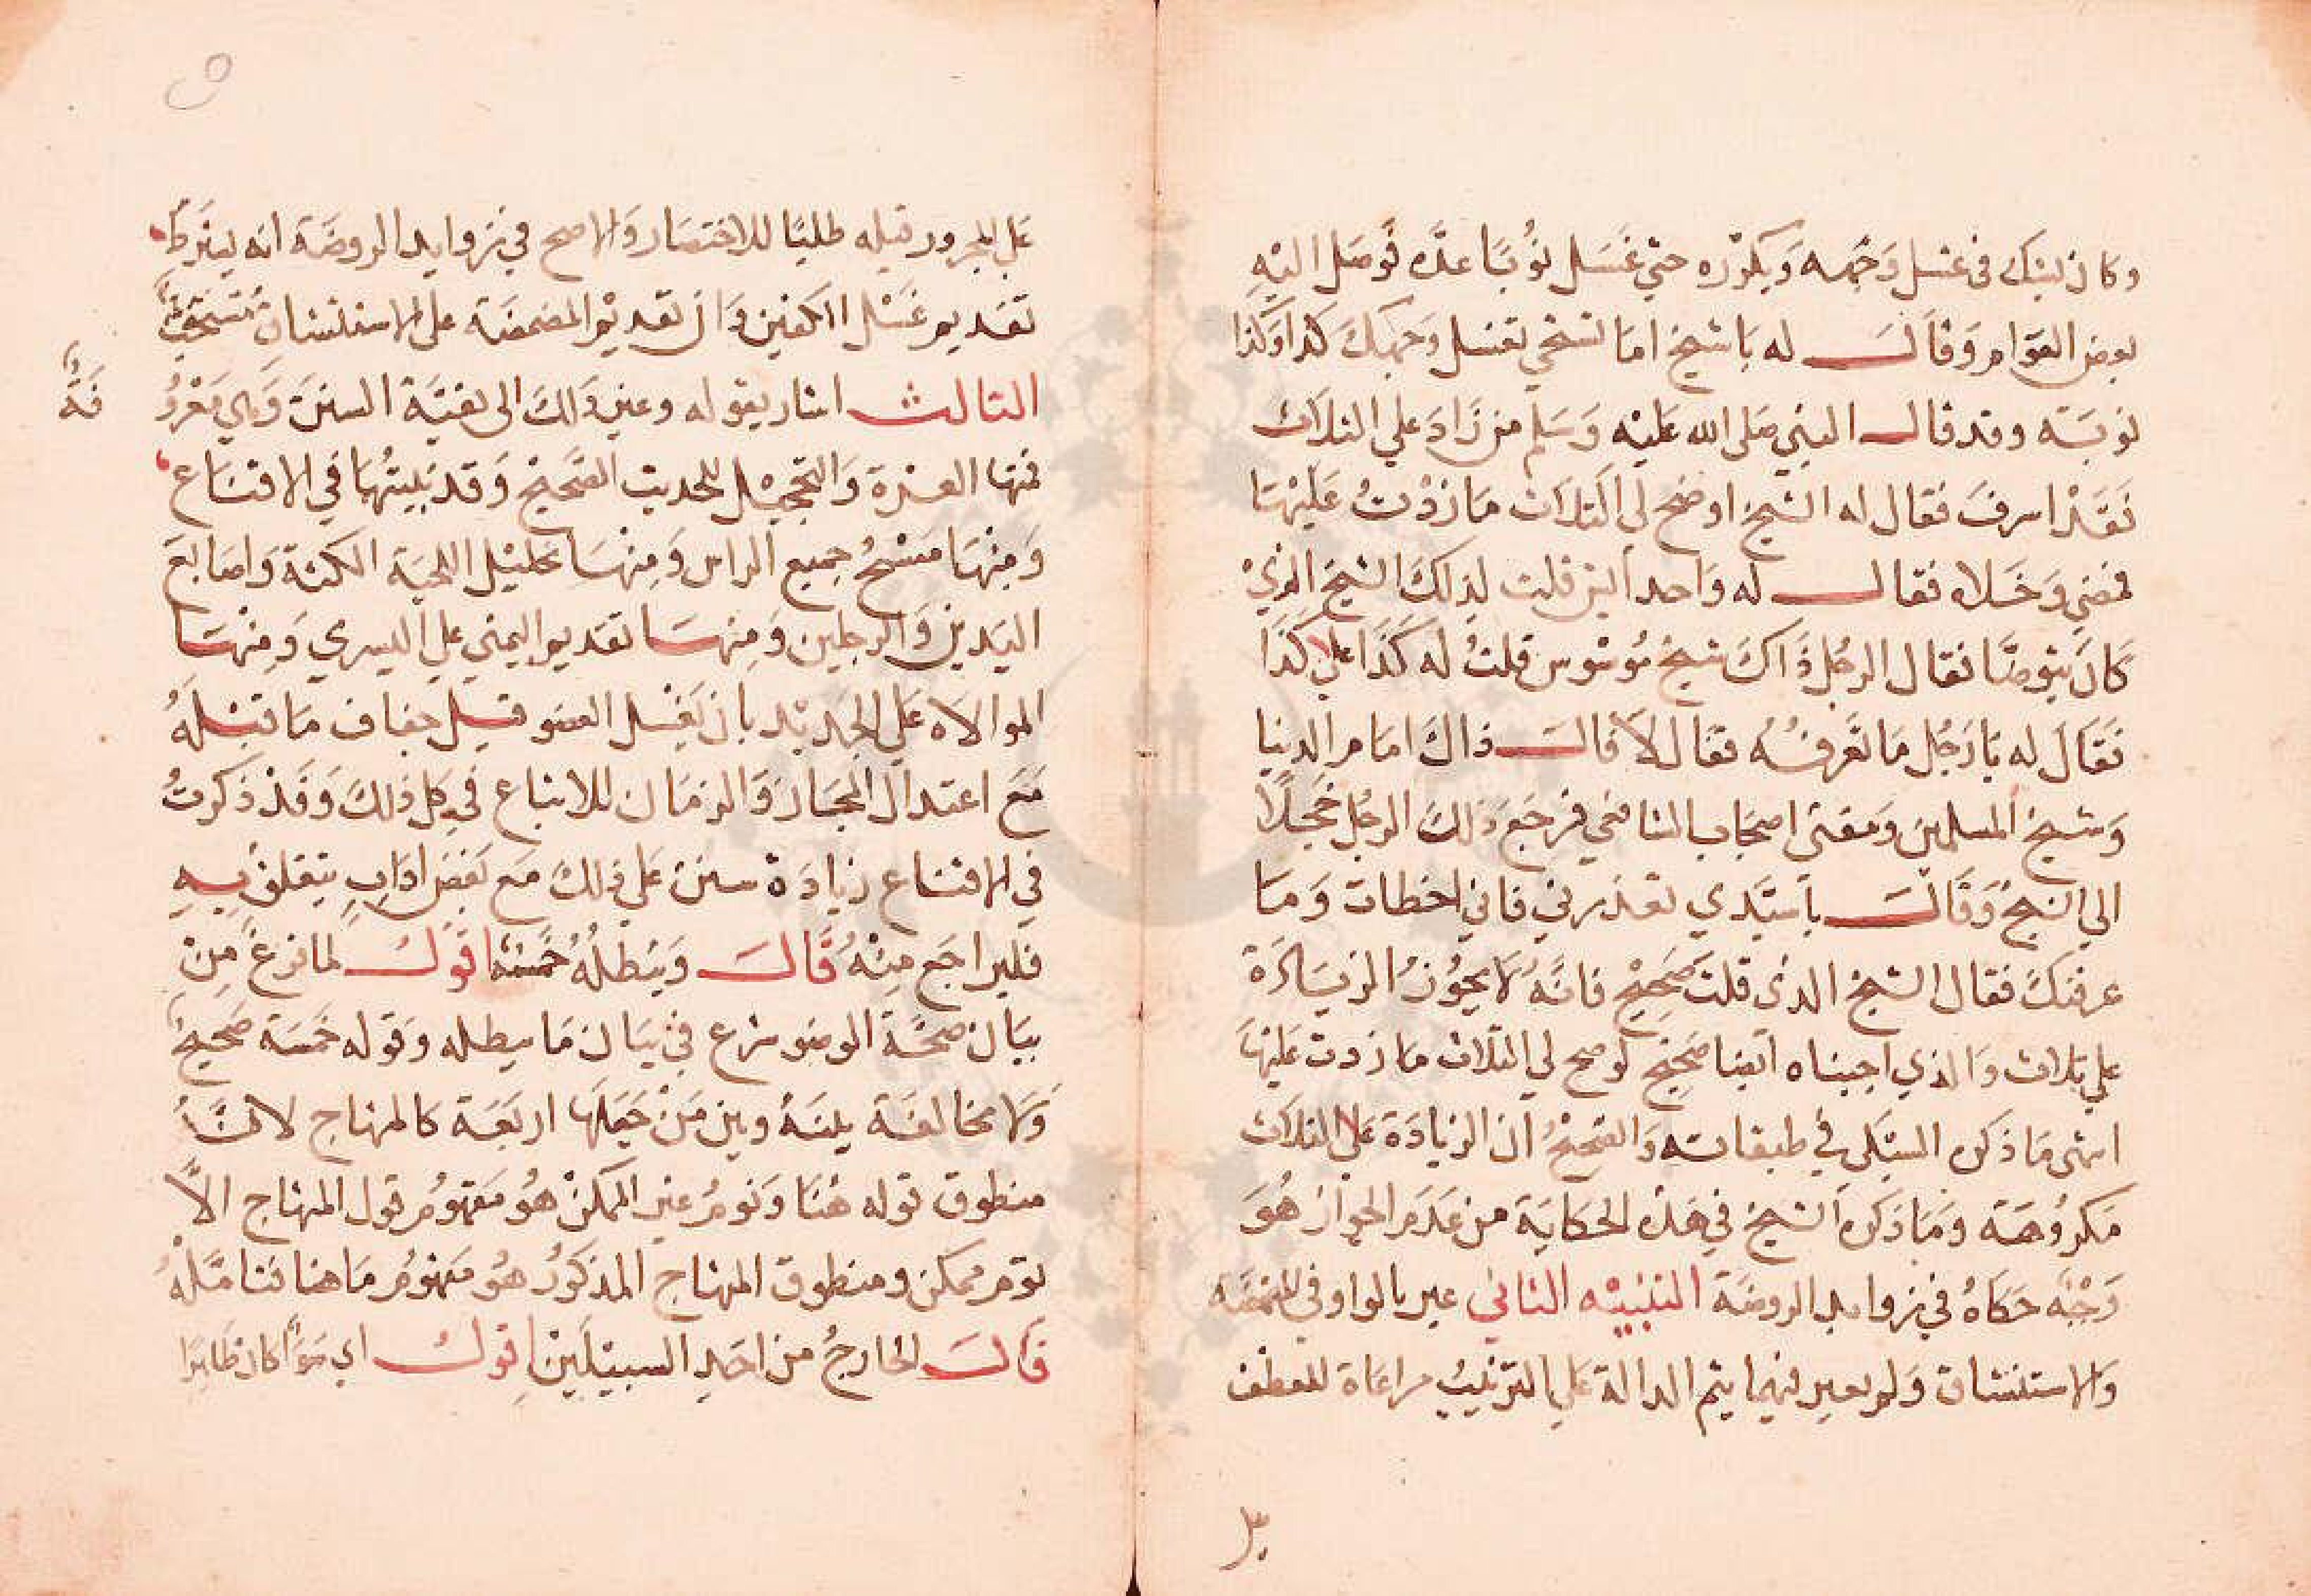 وكان يشك في غسل وجهه ويكرره حتي غسل نوبا عده فوصل اليه
بعض العوام وقال له يا شيخ اما تستحي تغسل وجهك كذا وكذا
نوبة وقد قال النبي صلى الله عليه وسلم من زاد علي الثلاث
فقد اسرف فقال له الشيخ اوضح لي الثلاث ما زدت عليها
فمضي وخلاه فقال له واحد ايش قلت لذلك الشيخ الذي
كان يتوضا فقال الرجل ذاك شيخ موسوس قلت له كذا علي كذا
فقال له يا رجل ما تعرفه فقال لا قال ذاك امام الدنيا
وشيخ المسلمين ومفتي اصحاب الشافعي فرجع ذلك الرجل خجلا
الي الشيخ وقال يا سيدي تعذرني فاني اخطات وما
عرفتك فقال الشيخ الذي قلت صحيح فانه لا يجوز الزيادة
علي ثلاث والذي اجبناه ايضا صحيح لو صح لي الثلاث ما زدت عليها
انتهى ما ذكره السبكي في طبقاته والصحيح ان الزيادة على الثلاث
مكروهة وما ذكره الشيخ في هذه الحكاية من عدم الجواز هو
وجه حكاه في زوايد الروضة التنبيه الثاني عبر بالواو في المضمضة
والاستنشاق ولم يعبر فيهما بثم الدالة علي الترتيب مراعاة للعطف
على المجرور قبله طلبا للاختصار والاصح في زوايد الروضة انه يشترط
تقديم غسل الكفين وان تقديم المضمضة على الاستنشاق مستحق
الثالث اشار بقوله وغير ذلك الى بقية السنن وهي معرو
فة
فمنها الغرة والتحجيل للحديث الصحيح وقد بينتهما في الاقناع
ومنها مسح جميع الراس ومنها تخليل اللحية الكثة واصابع
اليدين والرجلين ومنها تقديم اليمني علي اليسري ومنها
الموالاه علي الجديد بان يغسل العضو قبل جفاف ما قبله
مع اعتدال المجاز والزمان للاتباع في كل ذلك وقد ذكرت
في الاقناع زيادة سنن علي ذلك مع بعض اداب يتعلق به
فليراجع منه قال ويبطله خمسة اقول لما فرغ من
بيان صحة الوضو شرع في بيان ما يبطله وقوله خمسة صحيح
ولا مخالفة بينه وبين من جعلها اربعة كالمنهاج لان
منطوق قوله هنا ونوم غير الممكن هو مفهوم قول المنهاج الا
نوم ممكن ومنطوق المنهاج المذكور هو مفهوم ما هنا فتامله
قال الخارج من احد السبيلين اقول اي سوا كان طاهرا